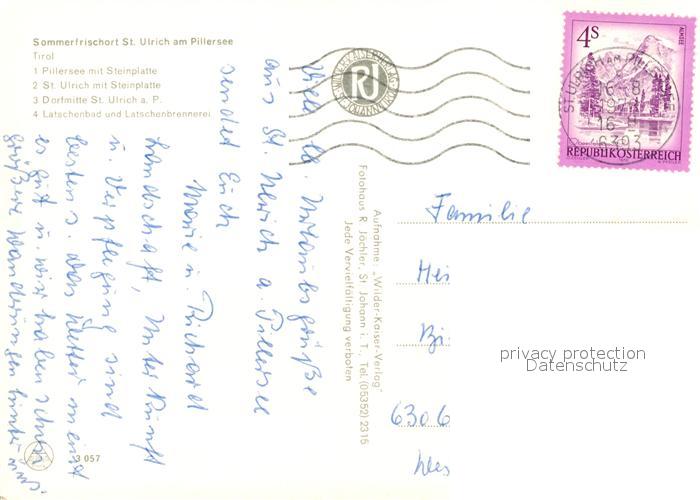 Sommerfrischort St. Ulrich am Pillersee
Tirol
1 Pillersee mit Steinplatte
2 St. Ulrich mit Steinplatte
3 Dorfmitte St. Ulrich a. P.
4 Latschenbad und Latschenbrennerei
4S
ALMSEE
REPUBLIK ÖSTERREICH
6393
Viele lb. Urlaubsgrüße
aus St. Ulrich a. Pillersee
sendet Euch
Marie u. Richard
Landschaft, Unterkunft
u. Verpflegung sind
bestens. Das Wetter meint
es gut u. wir haben schon
größere Wanderungen hinter uns.
Aufnahme: „Wilder-Kaiser-Verlag"
Fotohaus R. Jöchler, St. Johann i. T., Tel. (05352) 2316
Jede Vervielfältigung verboten
Familie
Hei
Bi
6306
privacy protection
Datenschutz
3 057